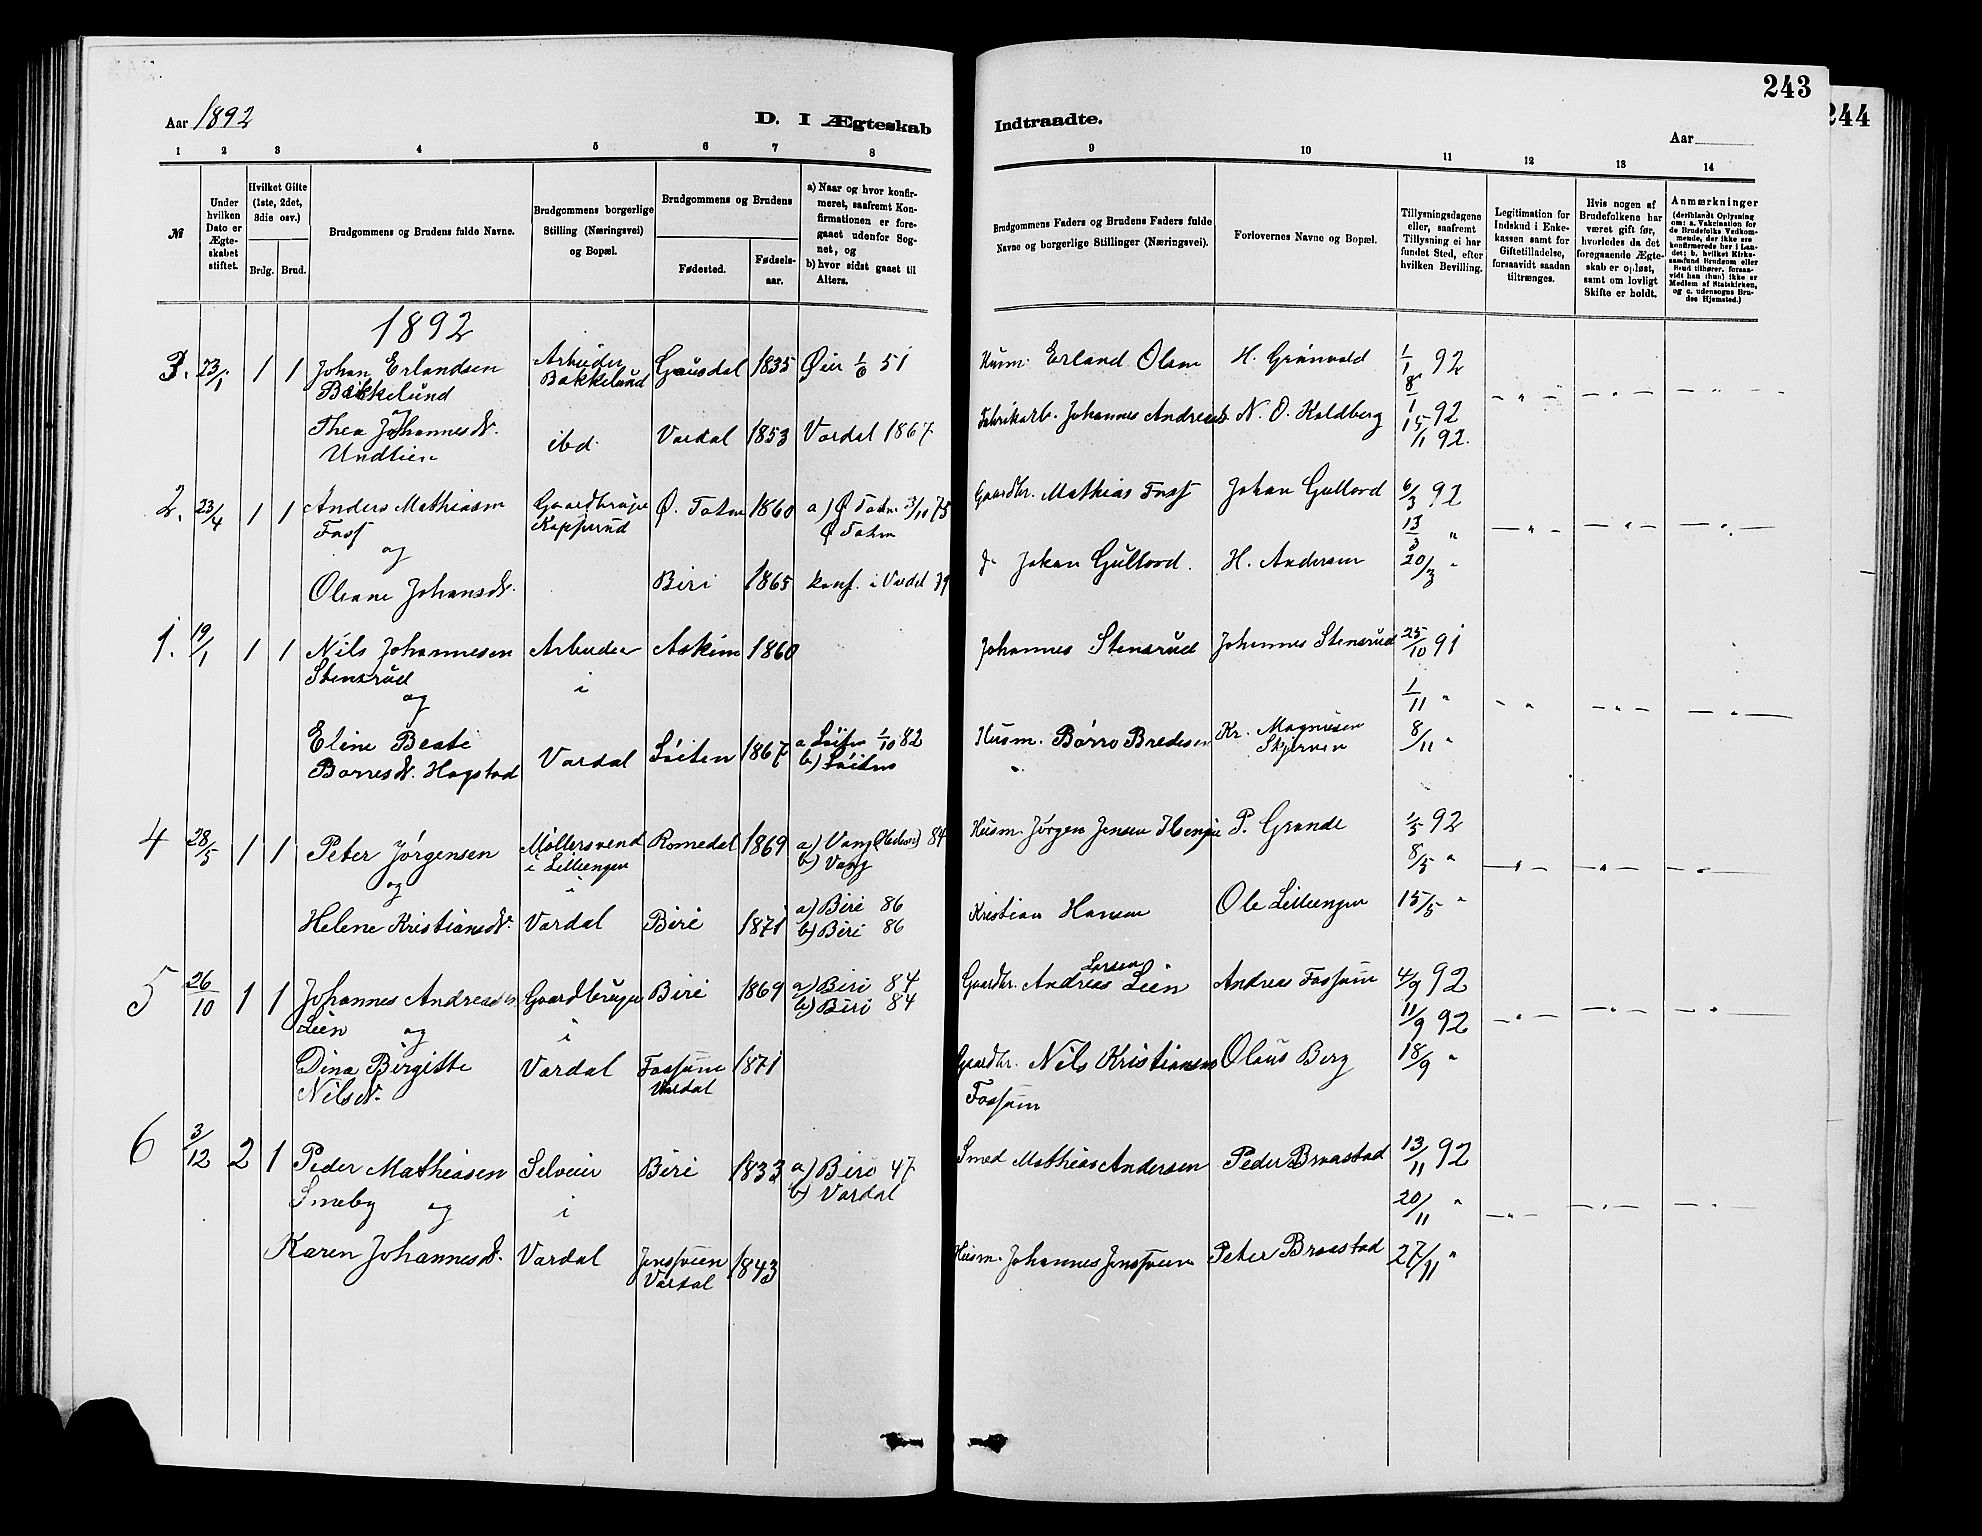 243
244
Aar 1892
D. I Ægteskab
Indtraadte.
Aar
1 2 3 4 5 6 7 8
9 10 11 12 13 14
№
Under hvilken Dato er Ægteskabet stiftet.
Hvilket Gifte (1ste, 2det, 3die osv.)
Brdg. Brud.
Brudgommens og Brudens fulde Navne.
Brudgommens borgerlige Stilling (Næringsvei) og Bopæl.
Brudgommens og Brudens
Fødested. Fødsels-aar.
a) Naar og hvor konfirmeret, saafremt Konfirmationen er foregaaet udenfor Sognet, og
b) hvor sidst gaaet til Alters.
Brudgommens Faders og Brudens Faders fulde Navne og borgerlige Stillinger (Næringsvei).
Forlovernes Navne og Bopæl.
Tillysningsdagene eller, saafremt Tillysning ei har fundet Sted, efter hvilken Bevilling.
Legitimation for Indskud i Enkekassen samt for Giftetilladelse, forsaavidt saadan tiltrænges.
Hvis nogen af Brudefolkene har været gift før, hvorledes da det foregaaende Ægteskab er opløst, samt om lovligt Skifte er holdt.
Anmærkninger
(deriblandt Oplysning om: a. Vakcination for de Brudefolks Vedkommende, der ikke ere konfirmerede her i Landet; b. hvilket Kirkesamfund Brudgom eller Brud tilhører, forsaavidt han (hun) ikke er Medlem af Statskirken, og c. udensogns Brudes Hjemsted.)
1892
3. 23/1 1 1 Johan Erlandsen Arbeider Gausdal 1835 Øier 1/6 51 Husm. Erland Olsen H. Grønvold 1/1 92
Bakkelund Bakkelund 8/1 92
Thea Johannesd. ibd. Vardal 1853 Vardal 1867 Fabrikarb. Johannes Andreas N. O. Koldberg 15/1 92.
Undlien
2. 23/4 1 1 Anders Mathiasen Gaardbruger Ø. Toten 1860 a) Ø Toten 3/10 75 Gaardbr. Mathias Foss Johan Gullord 6/3 92
Foss Kopperud Ø Toten 13/3 "
og
Oleane Johansd. Biri 1865 konf. i Vardal 79 d. Johan Gullord. H. Andersen 20/3 "
1. 19/1 1 1 Nils Johannesen Arbeider Askim 1860 Johannes Stensrud Johannes Stensrud 25/10 91
Stensrud i 1/11 "
og
Eline Beate a Løiten 1/10 82 Husm. Børre Bredesen Kr. Magnusen 8/11 "
Borresd. Hagstad Vardal Løiten 1867 b) Løiten Skjerven
4 28/5 1 1 Peter Jørgensen Møllersvend Romedal 1869 a) Vang (Hedem) 84 Husm. Jørgen Jensen P. Grande 1/5 92
og i Lilleengen b) Vang 8/5 "
i
Helene Kristiansd. Vardal Biri 1871 a) Biri 86 Kristian Hansen Ole Lilleengen 15/5 "
b) Biri 86
5 26/10 1 1 Johannes Andreasen Gaardbruger Biri 1869 a) Biri 84 Gaardbr. Andreas Larsen Lien Andreas Fossum 4/9 92
Lien og i b) Biri 84 11/9 92
Dina Birgitte Vardal Fossum 1871 Gaardbr. Nils Kristiansen Olaus Berg 18/9 "
Nilsd. Vardal Fossum
6 3/12 2 1 Peder Mathiasen Selveier Biri 1833 a) Biri 47 Smed Mathias Andersen Peder Braastad 13/11 92
Smeby og i b) Vardal 20/11 "
Karen Johannesd. Vardal Jensveen 1843 Husm. Johannes Jensveen Peter Braastad 27/11 "
Vardal